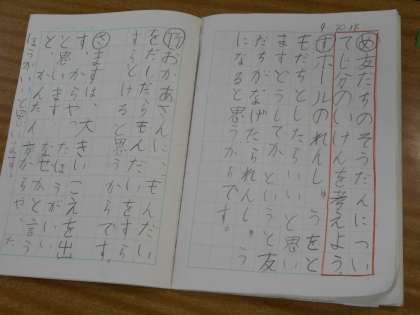 9 10.18
め 友だちのそうだんについ
てじ分のいけんを考えよう。
す ボールのれんしゅうをと
もだちとしたらいいと思い
ますどうしてかというと友
だちがなげたられんしゅう
になると思うからです。
おかあさんに、もんだい
をだしたらもんだいをすら
すらとけると思うからです。
さ ますは大きいこえを出
す、からやったほうがいい
と思います。なぜかと言う
と、かんたん
ほうがいいと思います。